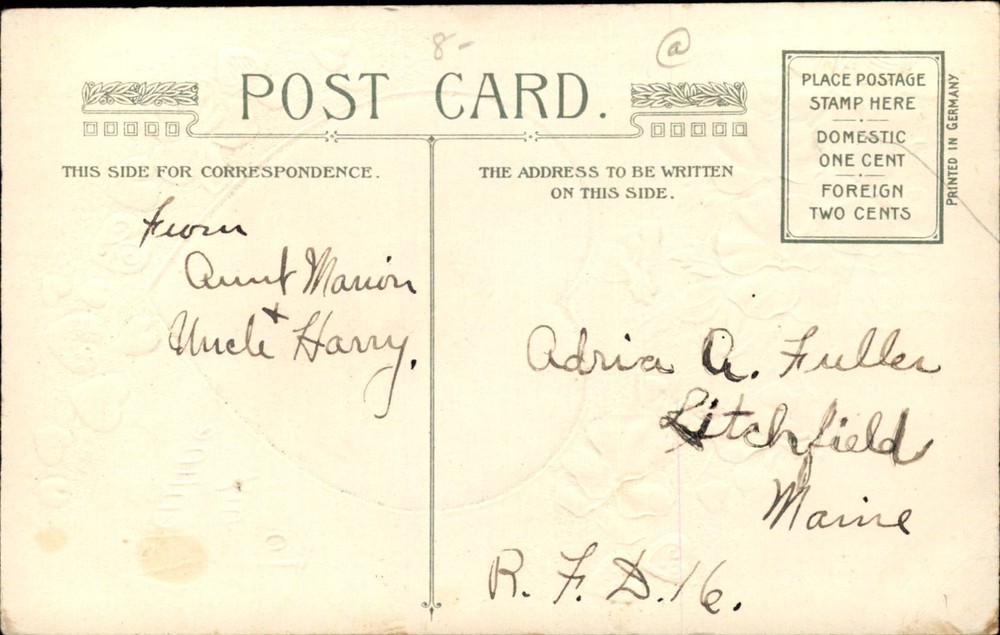 8-
@
POST CARD.
PLACE POSTAGE
STAMP HERE
DOMESTIC
ONE CENT
FOREIGN
TWO CENTS
PRINTED IN GERMANY
THIS SIDE FOR CORRESPONDENCE.
THE ADDRESS TO BE WRITTEN
ON THIS SIDE.
From
Aunt Marion
+
Uncle Harry.
Adria A. Fuller
Litchfield
Maine
R. F. D. 16.